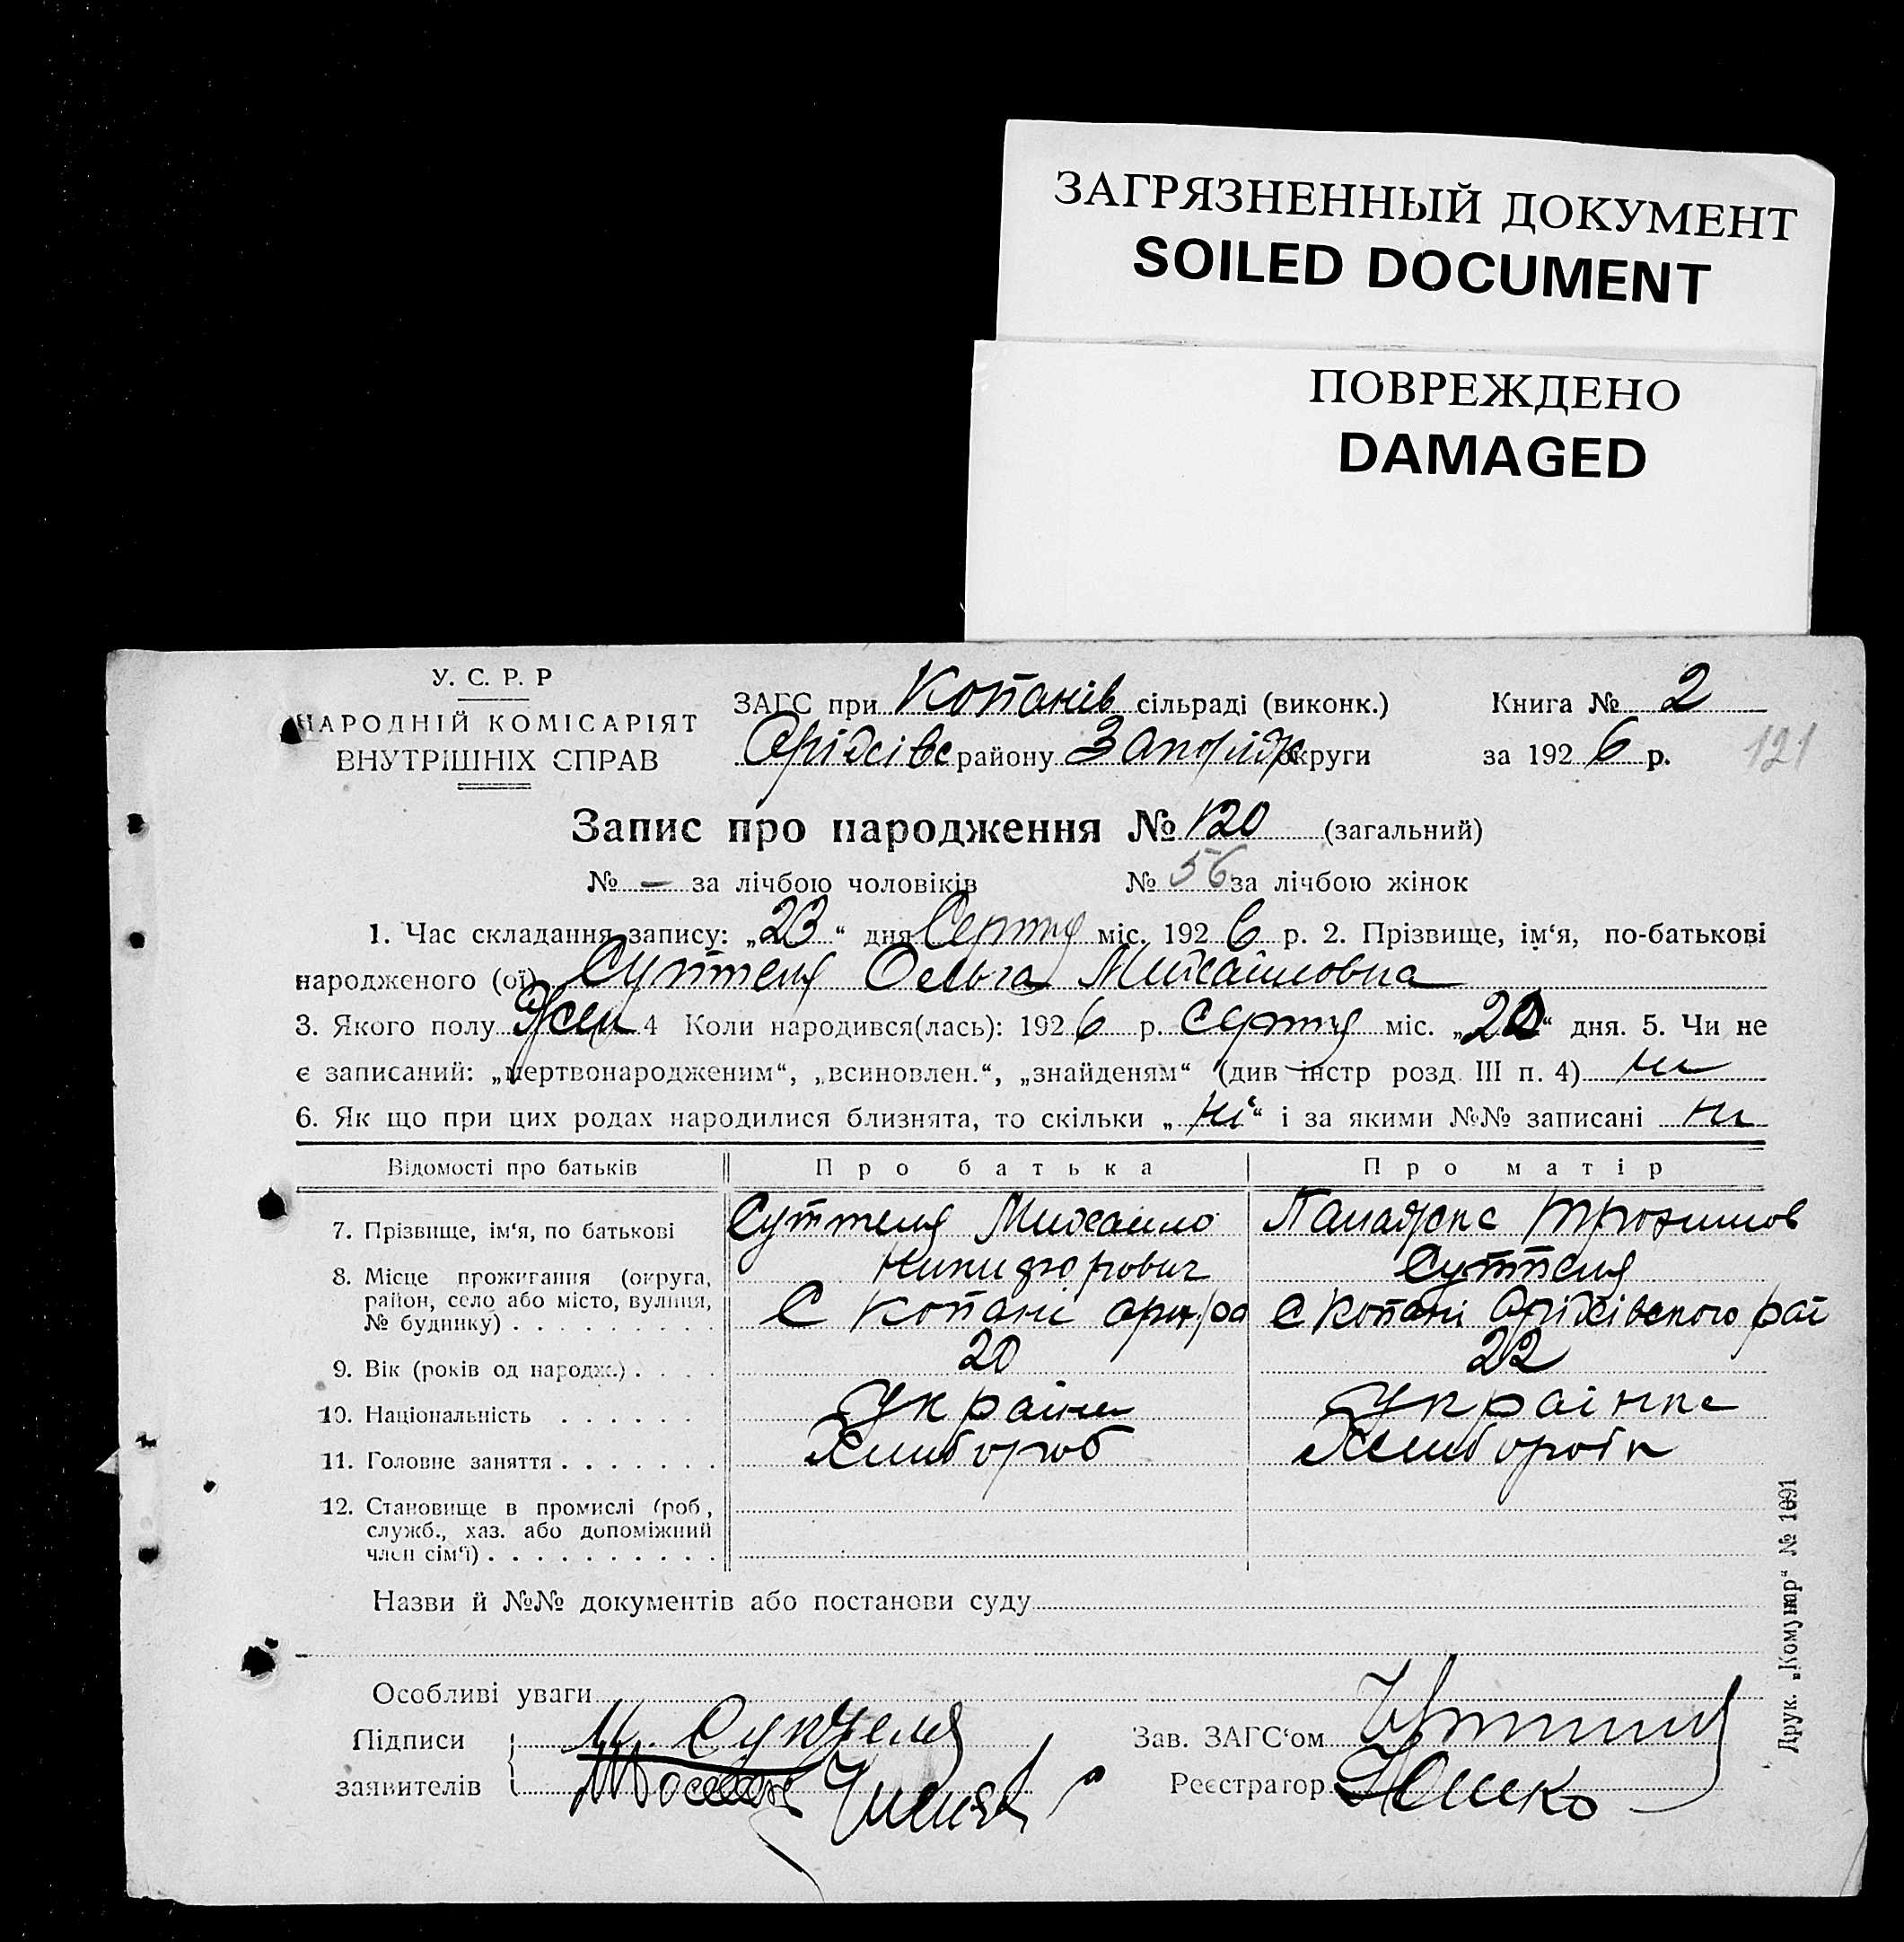 ЗАГРЯЗНЕННЫЙ ДОКУМЕНТ
SOILED DOCUMENT
ПОВРЕЖДЕНО
DAMAGED
У. С. Р. Р
НАРОДНІЙ КОМІСАРІЯТ
ВНУТРІШНІХ СПРАВ
ЗАГС при Копанів сільраді (виконк.) Книга № 2
Оріхівс району Запоріж округи за 1926 р. 121
Запис про народження № 120 (загальний)
№ — за лічбою чоловіків № 56 за лічбою жінок
1. Час складання запису: „23“ дня Серпня міс. 1926 р. 2. Прізвище, ім‘я, по-батькові
народженого (ої) Суптеля Ольга Михайловна
3. Якого полу Жен 4 Коли народився(лась): 1926 р. серпня міс. „20“ дня. 5. Чи не
є записаний: „мертвонародженим“, „всиновлен.“, „знайденям“ (див інстр розд. III п. 4) ні
6. Як що при цих родах народилися близнята, то скільки „ні“ і за якими №№ записані ні
Відомості про батьків Про батька Про матір
7. Прізвище, ім‘я, по батькові Суптеля Михайло
Суптеля
8. Місце проживання (округа,
район, село або місто, вулиця,
№ будинку) С Копані орх/ра С Копані Оріхівского рай
9. Вік (років од народж.) 20 22
10. Національність Україне Українка
11. Головне заняття Хлибороб
12. Становище в промислі (роб,
служб., хаз. або допоміжний
член сім‘ї)
Назви й №№ документів або постанови суду
Особливі уваги
Підписи М. Суптеля Зав. ЗАГС‘ом
заявителів Реєстратор
Друк. „Комунар“ № 1091